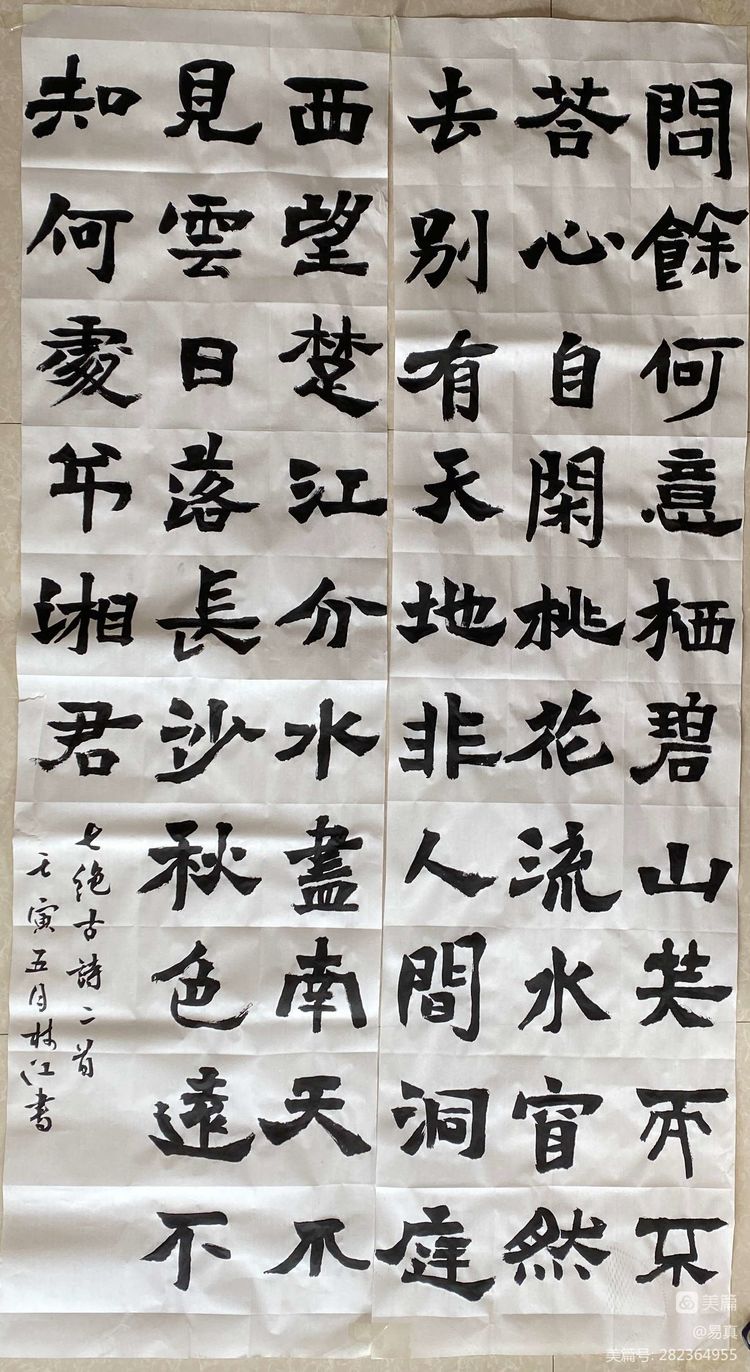 問餘何意栖碧山笑而不
荅心自閑桃花流水窅然
去别有天地非人間洞庭
西望楚江分水盡南天不
見雲日落長沙秋色遠不
知何處弔湘君
七绝古詩二首
壬寅五月林江書
美篇
@易真
美篇号: 282364955